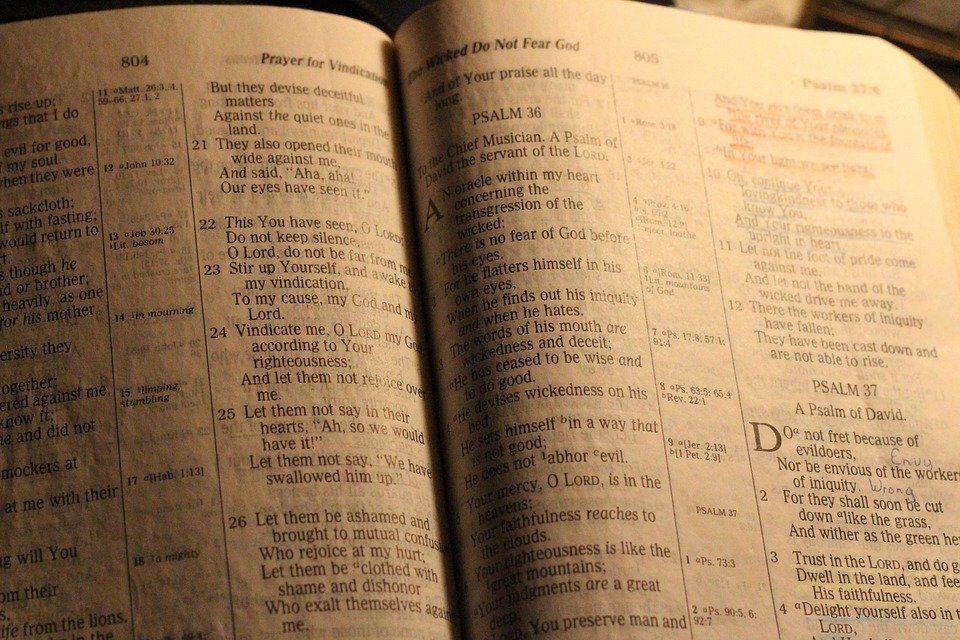 804
Prayer for Vindication
rise up;
ngs that I do
evil for good,
my soul.
when they were
sackcloth;
lf with fasting;
would return to
s though he
nd or brother;
heavily, as one
for his mother.
ersity they
ogether;
ered against me,
know it;
e and did not
mockers at
at me with their
g will You
om their
life from the lions.
in the
11 aMatt. 26:3, 4,
59–66; 27:1, 2
12 aJohn 10:32
13 aJob 30:25
1Lit. bosom
14 1in mourning
15 1limping,
stumbling
17 a[Hab. 1:13]
18 1a mighty
But they devise deceitful
matters
Against the quiet ones in the
land.
21 They also opened their mouth
wide against me,
And said, “Aha, aha!
Our eyes have seen it.”
22 This You have seen, O LORD;
Do not keep silence.
O Lord, do not be far from me.
23 Stir up Yourself, and awake
my vindication,
To my cause, my God and my
Lord.
24 Vindicate me, O LORD my God,
according to Your
righteousness;
And let them not rejoice over
me.
25 Let them not say in their
hearts, “Ah, so we would
have it!”
Let them not say, “We have
swallowed him up.”
26 Let them be ashamed and
brought to mutual confus
Who rejoice at my hurt;
Let them be aclothed with
shame and dishonor
Who exalt themselves agai
me.
The Wicked Do Not Fear God
805
Psalm 37:4
And of Your praise all the day
long.
PSALM 36
To the Chief Musician. A Psalm of
David the servant of the LORD.
AN oracle within my heart
concerning the
transgression of the
wicked:
There is no fear of God before
his eyes.
For he flatters himself in his
own eyes,
When he finds out his iniquity
and when he hates.
The words of his mouth are
wickedness and deceit;
He has ceased to be wise and
to do good.
He devises wickedness on his
bed;
He sets himself bin a way that
is not good;
He does not 1abhor cevil.
Your mercy, O LORD, is in the
heavens;
Your faithfulness reaches to
the clouds.
Your righteousness is like the
great mountains;
Your judgments are a great
deep;
You preserve man and
1 aRom. 3:18
3 aJer. 4:22
4 aProv. 4:16
6 a[Rom. 11:33]
1Lit. mountains
of God
7 aPs. 17:8; 57:1;
91:4
8 aPs. 63:5; 65:4
bRev. 22:1
9 a[Jer. 2:13]
b[1 Pet. 2:9]
PSALM 37
1 aPs. 73:3
2 aPs. 90:5, 6;
92:7
9
In Your light we see light.
10 Oh, continue Your
lovingkindness to those who
know You,
And Your righteousness to the
upright in heart.
11 Let not the foot of pride come
against me,
And let not the hand of the
wicked drive me away.
12 There the workers of iniquity
have fallen;
They have been cast down and
are not able to rise.
PSALM 37
A Psalm of David.
DOa not fret because of
evildoers,
Envy
Nor be envious of the workers
of iniquity. Wrong
2 For they shall soon be cut
down alike the grass,
And wither as the green he
3 Trust in the LORD, and do g
Dwell in the land, and fee
His faithfulness.
4 aDelight yourself also in t
LORD,